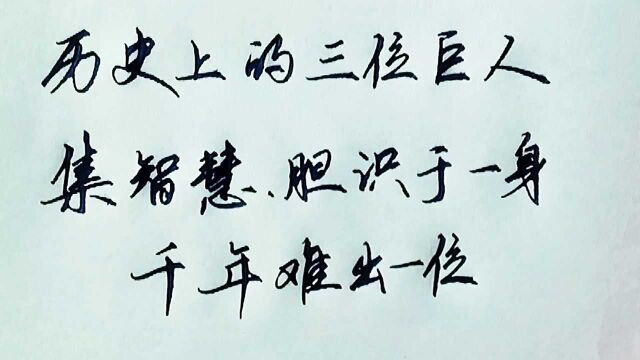 历史上的三位巨人
集智慧、胆识于一身
千年难出一位